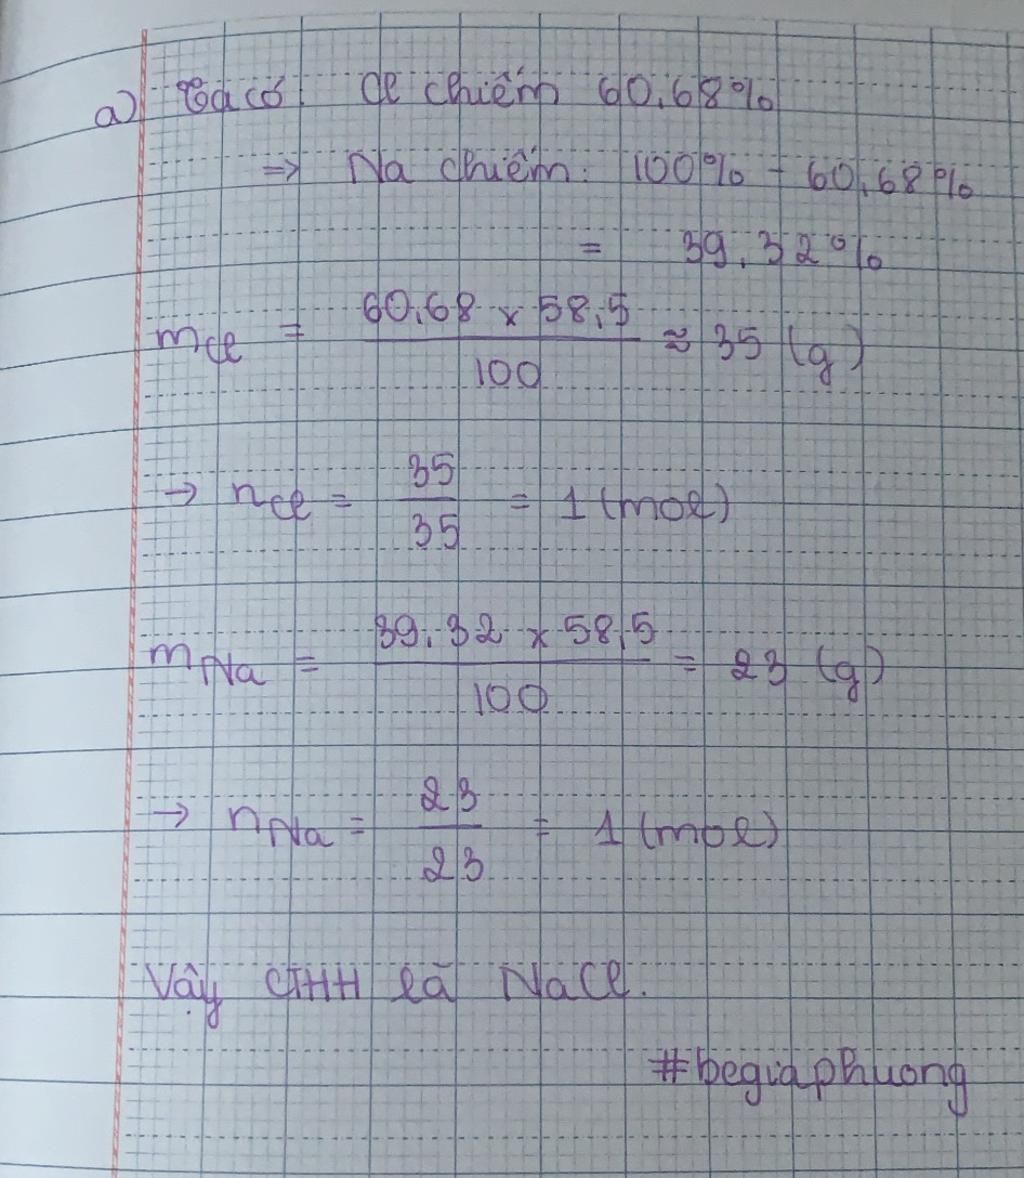 a) Ta có Cl chiếm 60,68%
=> Na chiếm: 100% - 60,68%
= 39,32%
mCl = 60,68 x 58,5 / 100 ≈ 35 (g)
→ nCl = 35 / 35 = 1 (mol)
mNa = 39,32 x 58,5 / 100 = 23 (g)
→ nNa = 23 / 23 = 1 (mol)
Vậy CTHH là NaCl.
#begiaphuong